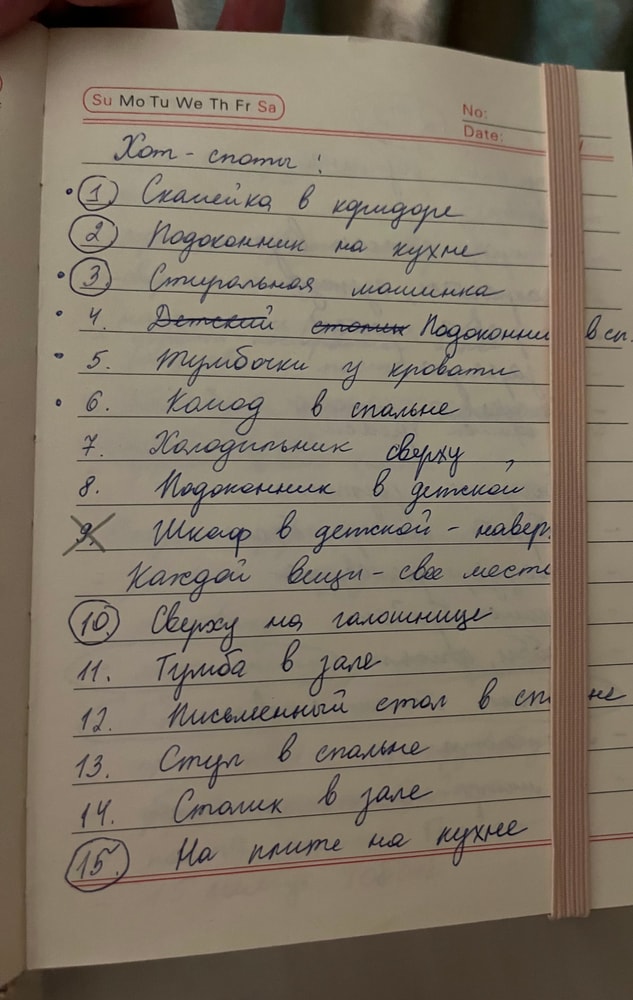 Su Mo Tu We Th Fr Sa
No:
Date:
Хот-споты:
1 Скамейка в коридоре
2 Подоконник на кухне
3. Стиральная машинка
4. Детский столик Подоконни в сп.
5. Тумбочки у кровати
6. Комод в спальне
7. Холодильник сверху
8. Подоконник в детской
9. Шкаф в детской - навер
Каждой вещи - свое место
10. Сверху на галошнице
11. Тумба в зале
12. Письменный стол в спальне
13. Стул в спальне
14. Столик в зале
15. На плите на кухне